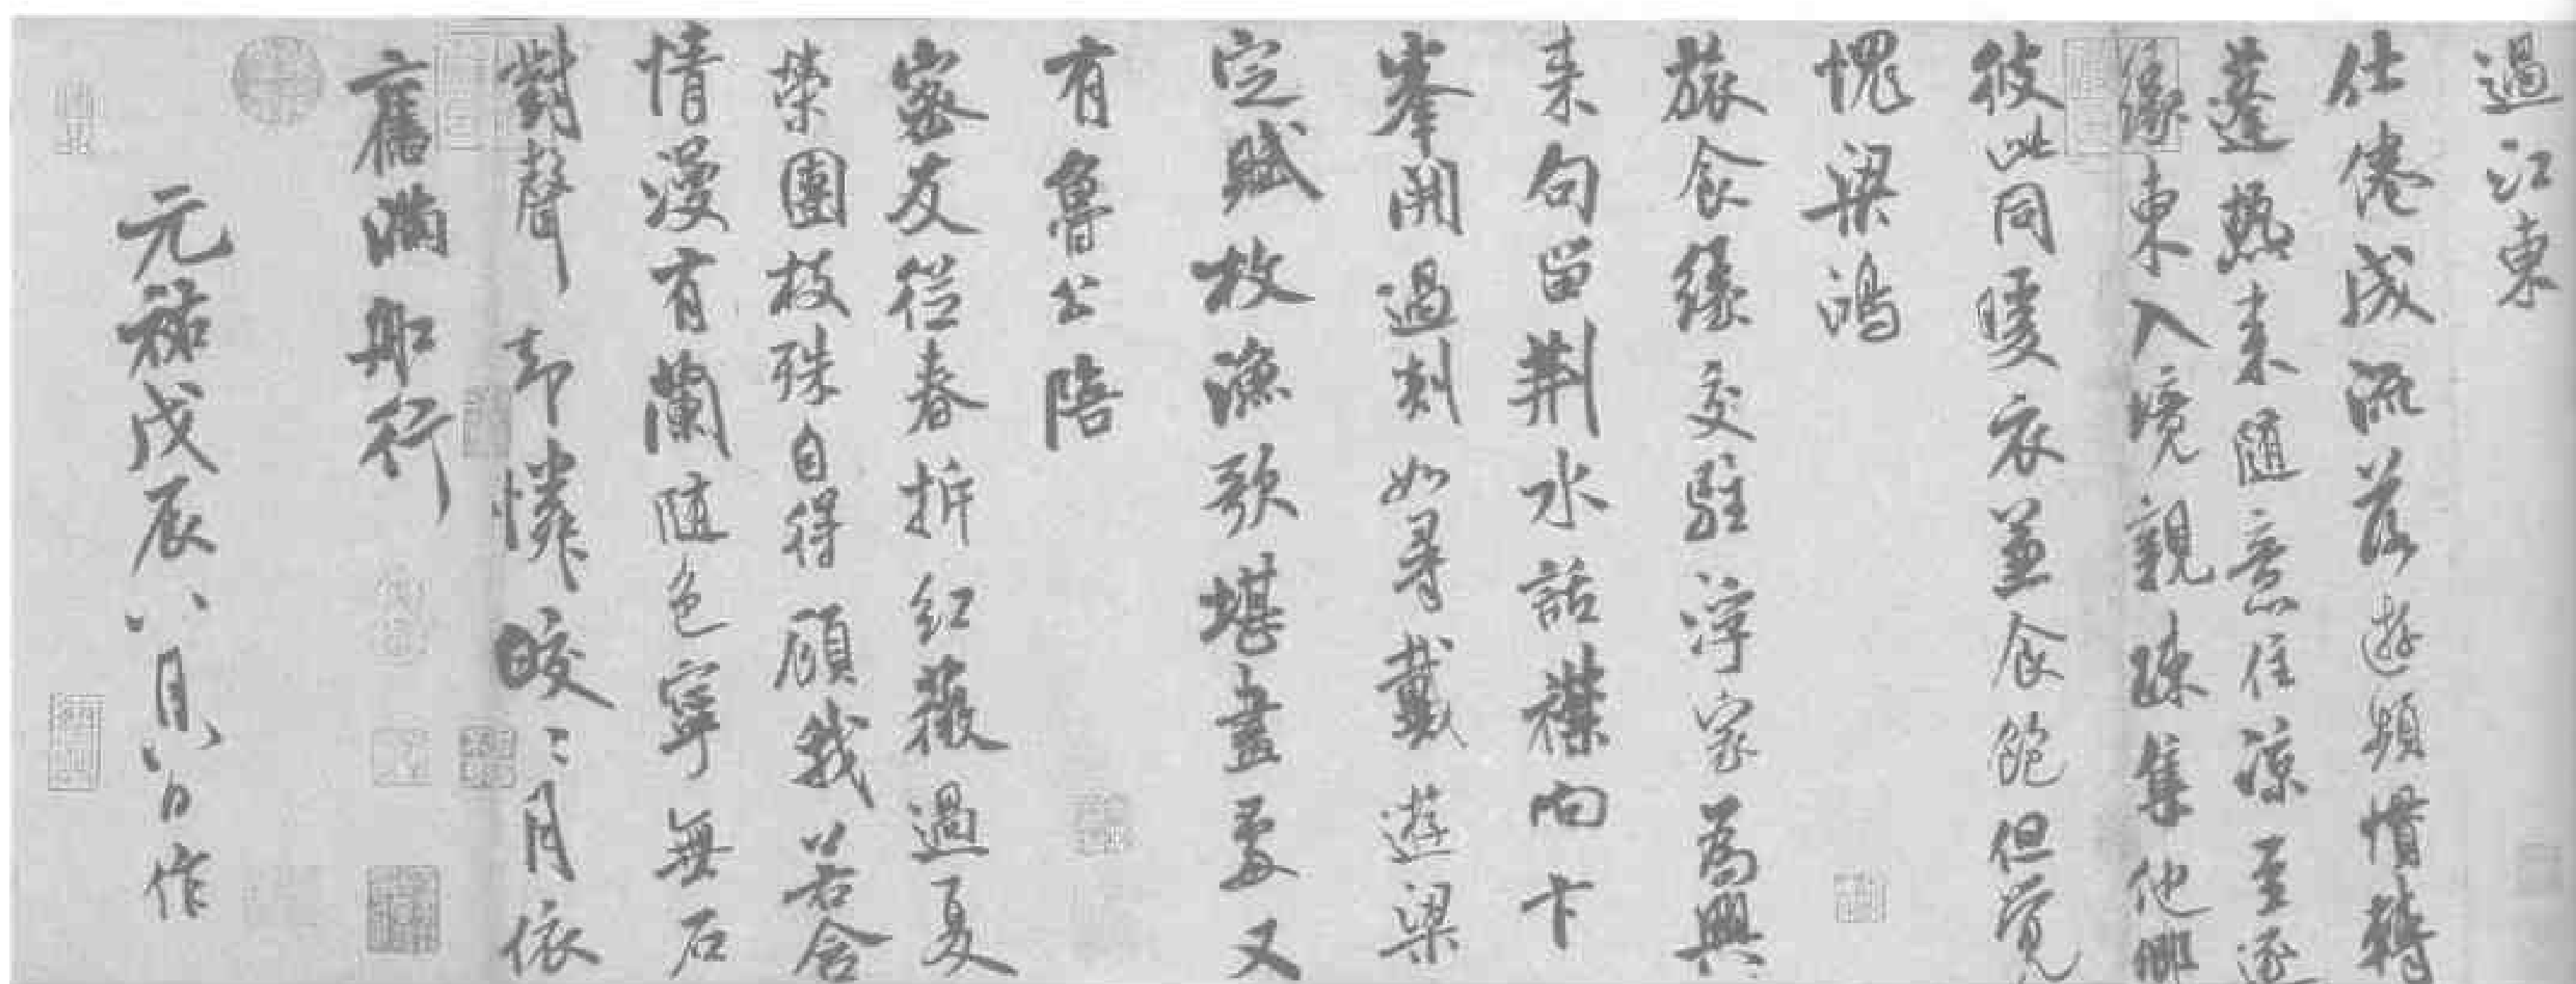 過江東
仕倦成流落遊頻慣轉
蓬熱来隨意住涼至逐
緣東入境親疎集他鄉
彼此同暖衣兼食飽但覺
愧梁鴻
旅食緣交駐浮家為興
来句留荆水話襟向卞
峯開過剡如尋戴遊梁
定賦枚漁歌堪畫處又
有魯公陪
密友從春拆紅薇過夏
榮團枝殊自得顧我若含
情漫有蘭隨色寧無石
對聲却憐皎〻月依
舊滿舡行
元祐戊辰八月八日作